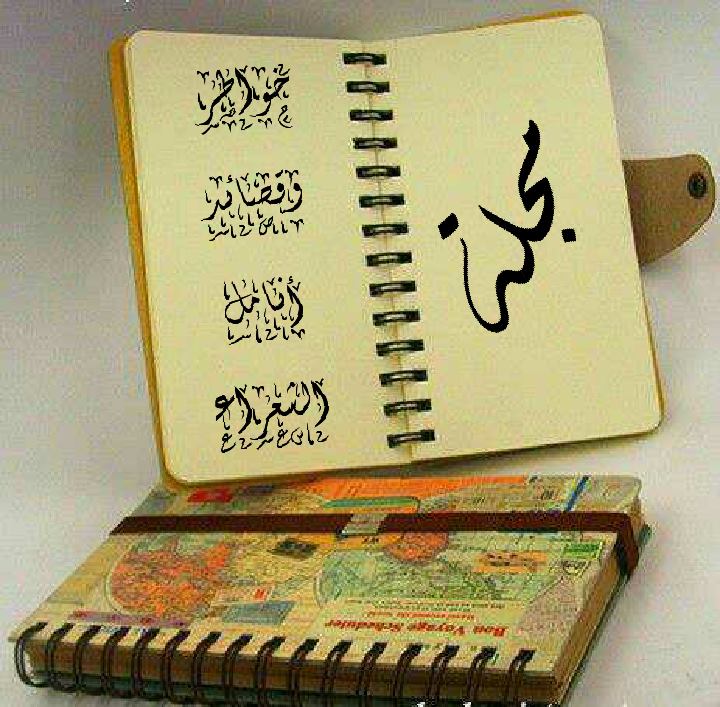 مجلة
خواطر
وقصائد
أنامل
الشعراء
Bon Voyage Scheduler